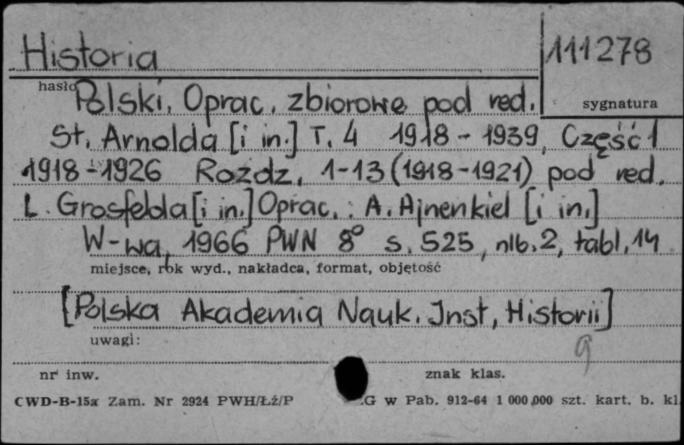 Historia 111278
hasło sygnatura
Polski. Oprac. zbiorowe pod red.
St. Arnolda [i in.] T. 4 1918-1939, Część 1
1918-1926 Rozdz. 1-13 (1918-1921) pod red.
L. Grosfelda [i in.] Oprac.: A. Ajnenkiel [i in.]
W-wa, 1966 PWN 8° s. 525, nlb. 2, tabl. 14
miejsce, rok wyd., nakładca, format, objętość
[Polska Akademia Nauk. Inst. Historii]
uwagi:
9
nr inw. znak klas.
CWD-B-15a Zam. Nr 2924 PWH/Łź/P .G w Pab. 912-64 1 000 000 szt. kart. b. kl